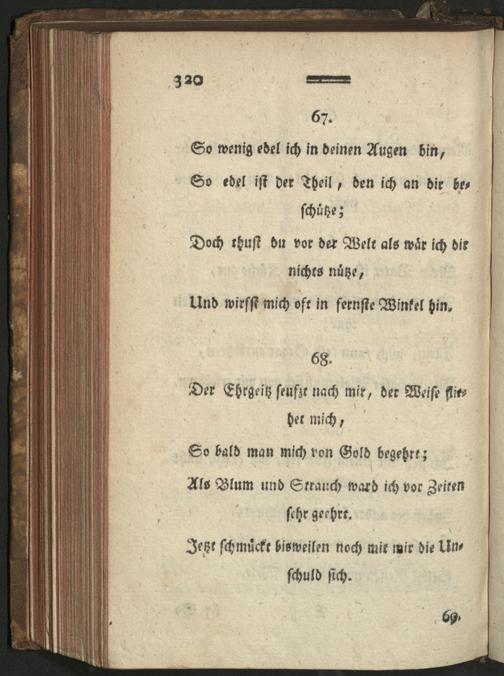 320
67.
So wenig edel ich in deinen Augen bin,
So edel ist der Theil, den ich an dir be-
schütze;
Doch thust du vor der Welt als wär ich dir
nichts nütze,
Und wirfst mich oft in fernste Winkel hin.
68.
Der Ehrgeitz seufzt nach mir, der Weise flie-
het mich,
So bald man mich von Gold begehrt;
Als Blum und Strauch ward ich vor Zeiten
sehr geehrt.
Jetzt schmückt bisweilen noch mit mir die Un-
schuld sich.
69.